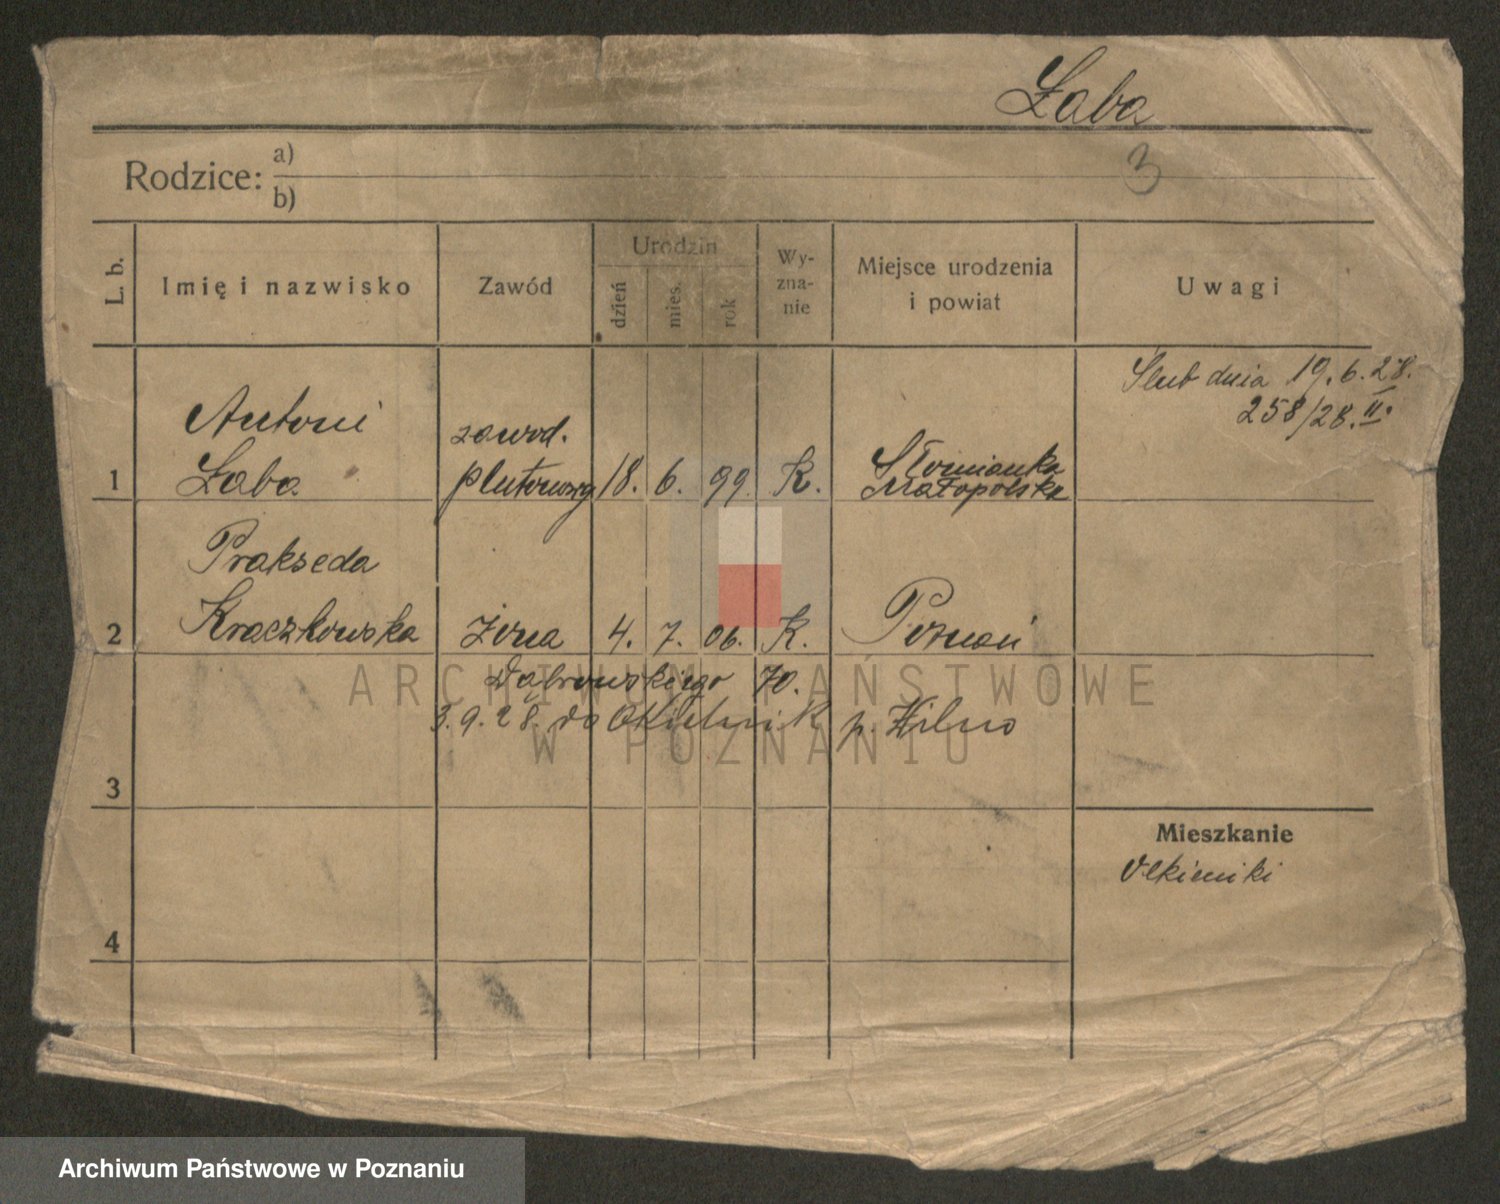 Łaba
3
Rodzice: a)
b)
L. b.
Imię i nazwisko
Zawód
Urodzin
dzień
mies.
rok
Wy-
zna-
nie
Miejsce urodzenia
i powiat
Uwagi
Ślub dnia 19.6.28.
258/28.II.
Antoni
zawod.
1 Łaba plutonowy 18. 6. 99. K. Słomianka
Małopolska
Prakseda
2 Kraczkowska żona 4. 7. 06. K. Poznań
Dąbrowskiego 70.
3.9.28. do p. Wilno
3
Mieszkanie
4
ARCHIWUM PAŃSTWOWE
W POZNANIU
Archiwum Państwowe w Poznaniu